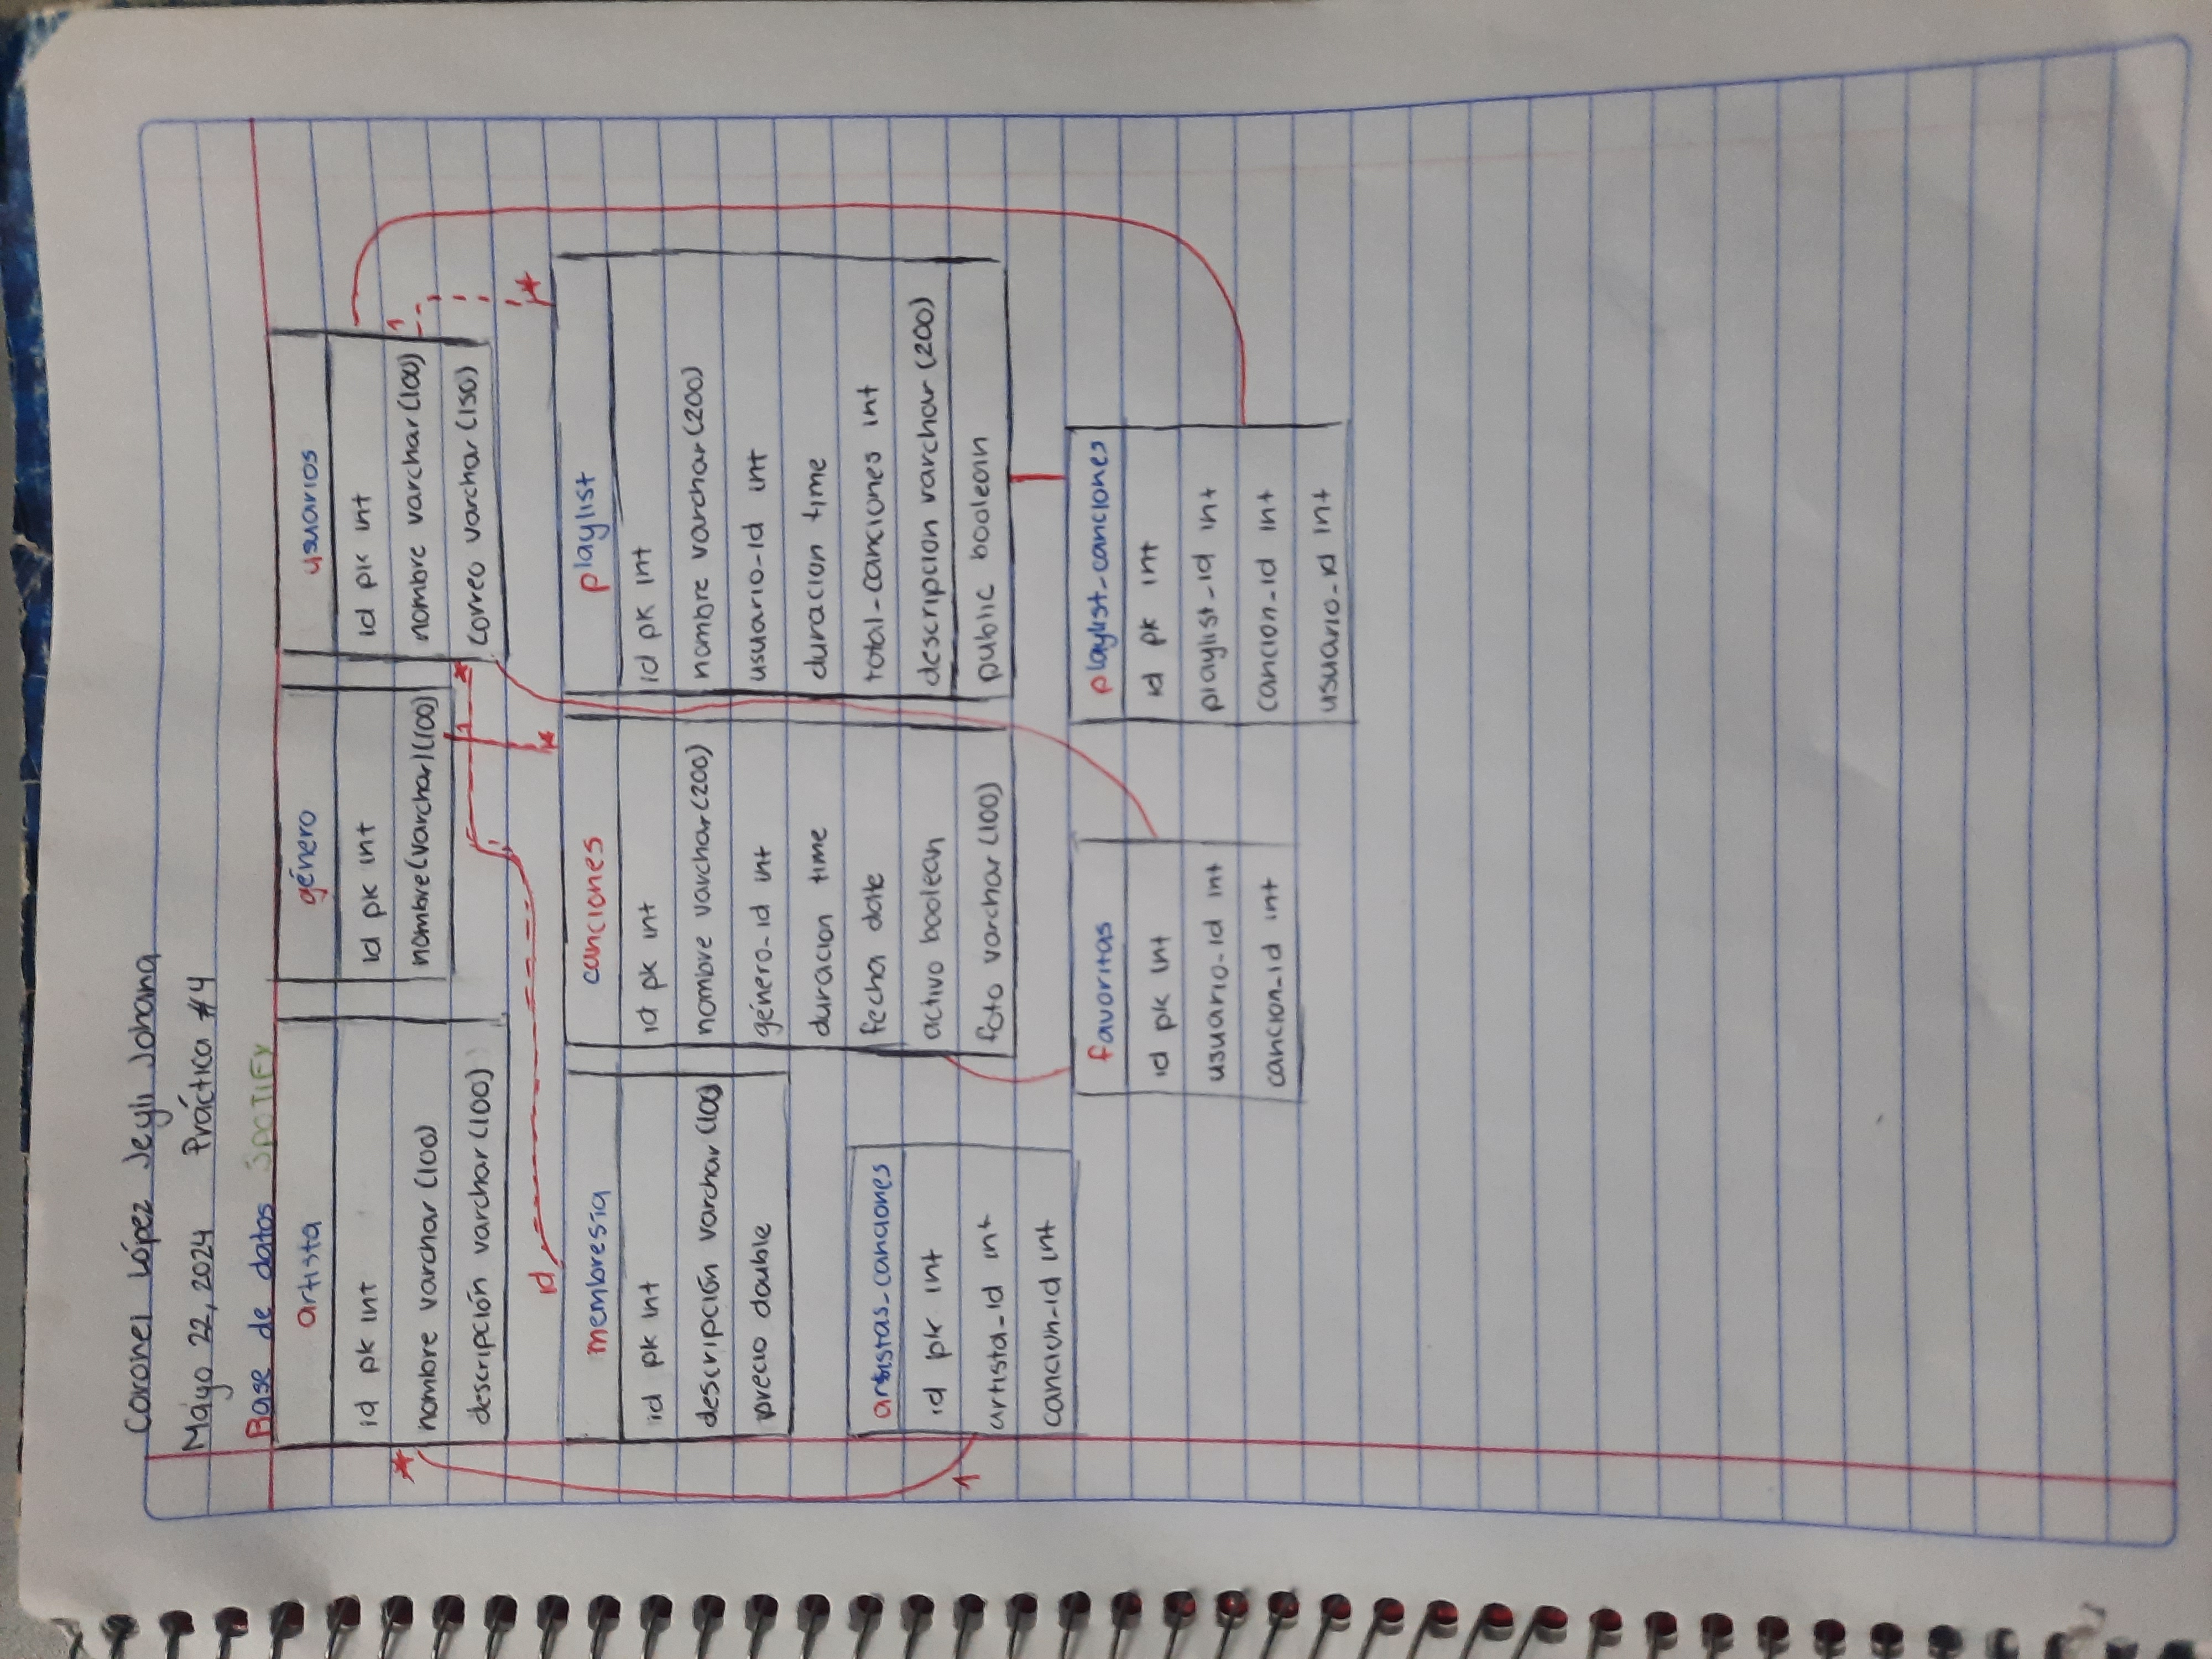 Coronel López Jeyli Johana
Mayo 22, 2024 Práctica #4
Base de datos SPOTIFY
artista
id pk int
nombre varchar (100)
descripción varchar (100)
género
id pk int
nombre (varchar) (100)
usuarios
id pk int
nombre varchar (100)
correo varchar (150)
*
1
*
1
*
1
*
id
membresía
id pk int
descripción varchar (100)
precio double
canciones
id pk int
nombre varchar (200)
género_id int
duracion time
fecha date
activo boolean
foto varchar (100)
playlist
id pk int
nombre varchar (200)
usuario_id int
duracion time
total_canciones int
descripcion varchar (200)
public boolean
artistas_canciones
id pk int
artista_id int
cancion_id int
favoritas
id pk int
usuario_id int
cancion_id int
playlist_canciones
id pk int
playlist_id int
cancion_id int
usuario_id int